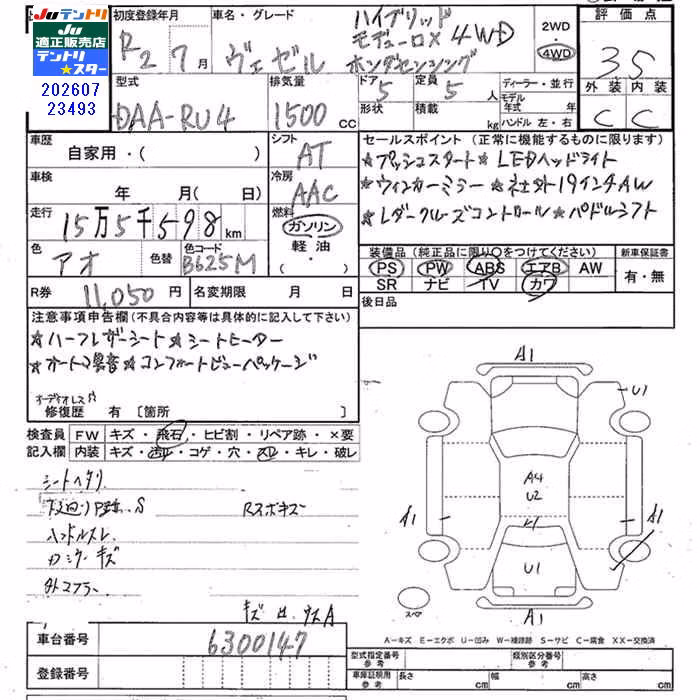 Ju テントリ Ju テントリ
Ju
適正販売店
テントリ
★スター
202607
23493
初度登録年月
R2 7月
車名・グレード
ヴェゼル
ハイブリッド
モデューロX 4WD
ホンダセンシング
2WD
・
4WD
評価点
3.5
外装 内装
C C
型式
DAA-RU4
排気量
1500 cc
ドア 5
定員 5 人
形状
積載 kg
ディーラー・並行
モデル
年式 年
ハンドル 左・右
車歴
自家用・( )
シフト
AT
車検
年 月( 日)
冷房
AAC
走行
15万5千598 km
燃料
ガソリン
軽油
・
色
アオ
色替
色コード
B625M
R券
11,050 円
名変期限 月 日
セールスポイント(正常に機能するものに限ります)
☆プッシュスタート☆LEDヘッドライト
☆ウィンカーミラー☆社外19インチAW
☆レーダークルーズコントロール☆パドルシフト
装備品(純正品に限り○をつけてください)
新車保証書
PS PW ABS エアB AW
SR ナビ TV カワ
有・無
後日品
注意事項申告欄(不具合内容等は具体的に記入して下さい)
☆ハーフレザーシート☆シートヒーター
☆コンフォートビューパッケージ
オーディオレス
修復歴 有 [箇所 ]
検査員
記入欄
FW キズ・飛石・ヒビ割・リペア跡・×要
内装 キズ・汚レ・コゲ・穴・スレ・キレ・破レ
シートヘタリ
下廻り S
ハンドルスレ
キズ
A1
U1
A4
U2
A1
A1
U1
A1
スペア
A−キズ E−エクボ U−凹み W−補修跡 S−サビ C−腐食 XX−交換済
車台番号
6300147
登録番号
型式指定番号
参考
類別区分番号
参考
車庫証明用
参考
長さ cm 幅 cm 高さ cm